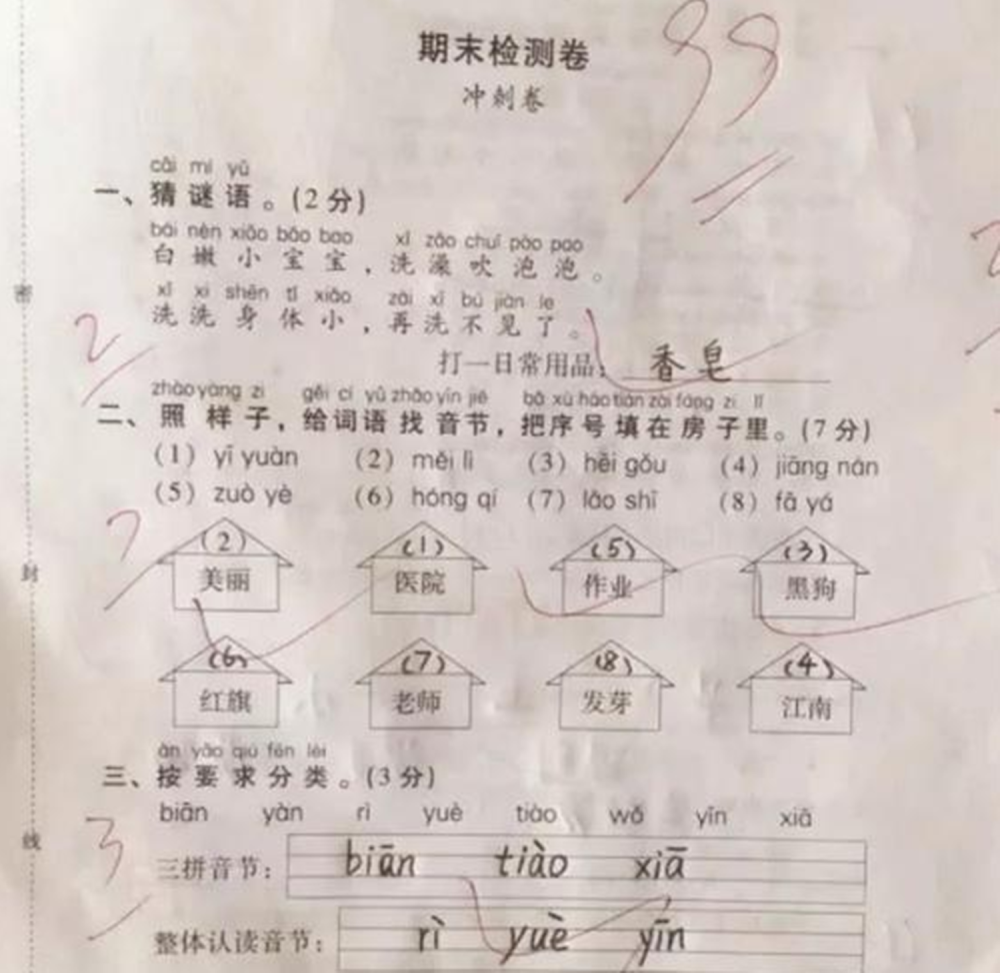 期末检测卷
98
冲刺卷
cāi mí yǔ
一、猜谜语。(2分)
bái nèn xiǎo bǎo bao xǐ zǎo chuī pào pao
白嫩小宝宝，洗澡吹泡泡。
xǐ xi shēn tǐ xiǎo zài xǐ bú jiàn le
洗洗身体小，再洗不见了。
2
打一日常用品：香皂
zhào yàng zi gěi cí yǔ zhǎo yīn jié bǎ xù hào tián zài fáng zi lǐ
二、照样子，给词语找音节，把序号填在房子里。(7分)
(1) yī yuàn (2) měi lì (3) hēi gǒu (4) jiāng nán
(5) zuò yè (6) hóng qí (7) lǎo shī (8) fā yá
7
(2) (1) (5) (3)
美丽 医院 作业 黑狗
(6) (7) (8) (4)
红旗 老师 发芽 江南
àn yāo qiú fēn lèi
三、按要求分类。(3分)
biān yàn rì yuè tiào wǒ yīn xiā
3
三拼音节： biān tiào xiā
整体认读音节： rì yuè yīn
密
封
线